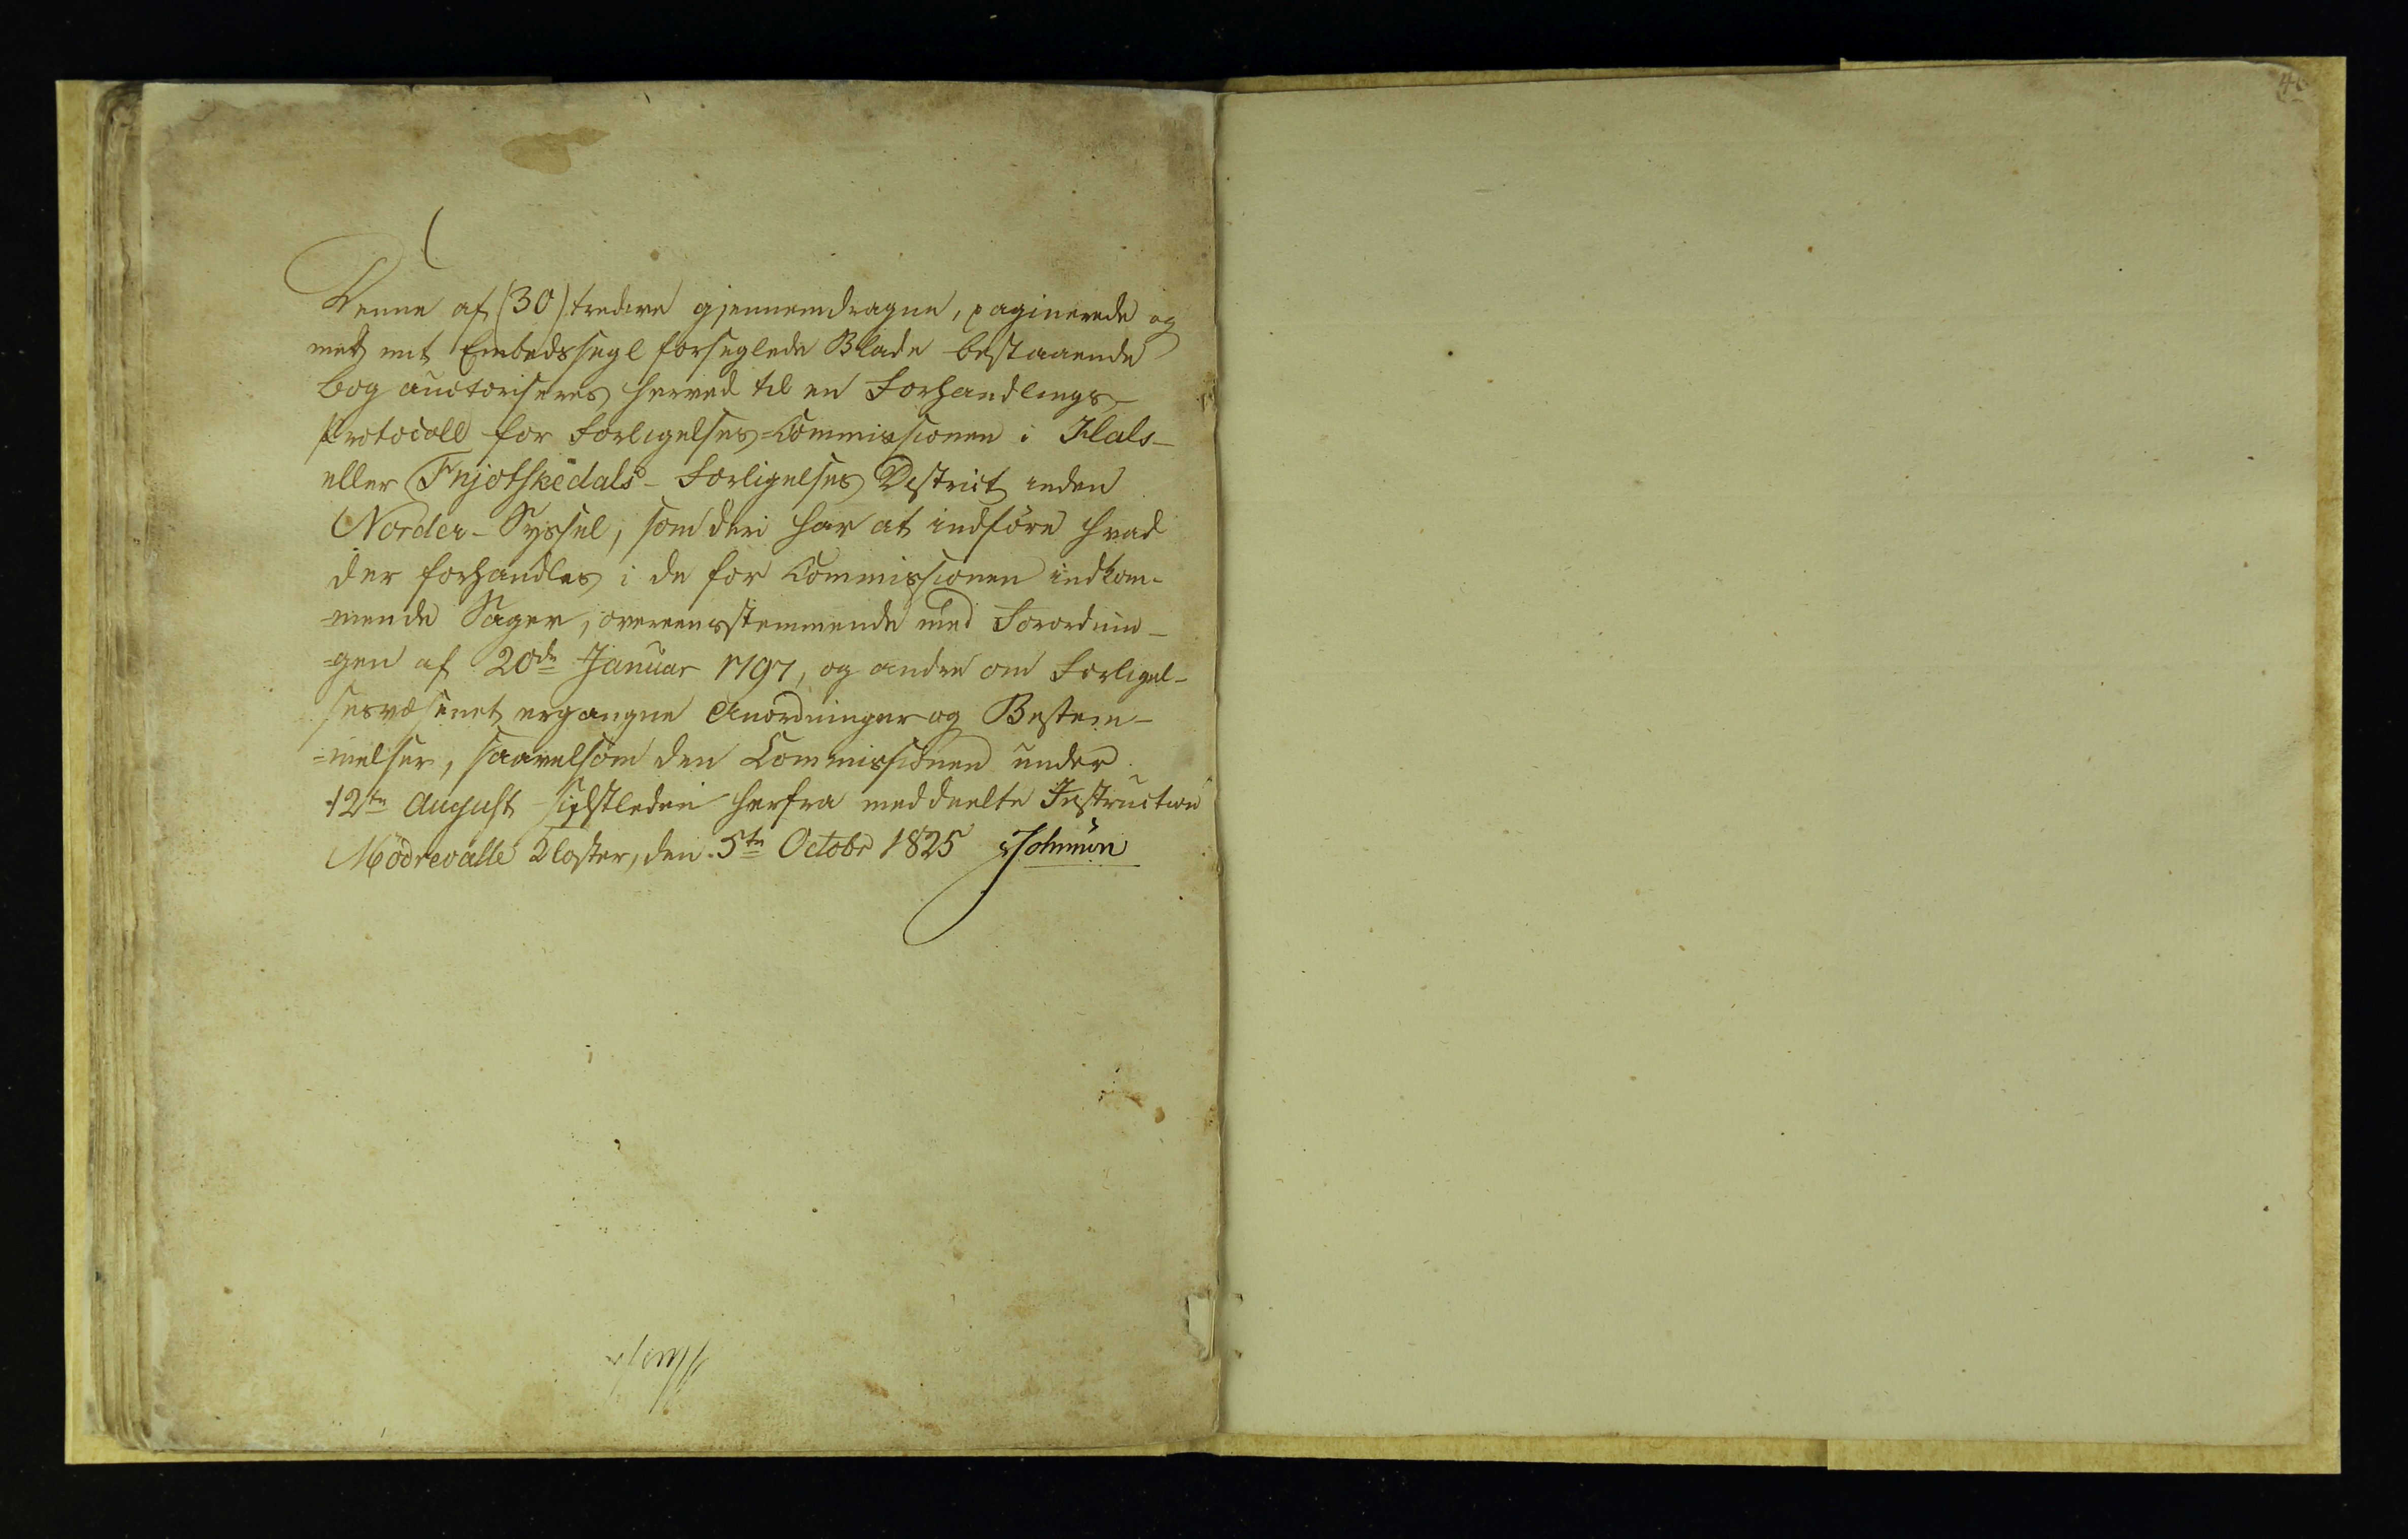 Denne af (30) tredive gjennemdragne, paginerede og
med mit Embedssegl forseglede Blade bestaaende
bog auctoriseres herved til en Forhandlings-
Protocoll for Forligelses=Commissionen i Hals-
eller Fnjotskedals- Forligelses District inden
Norder-Syssel, som deri har at indföre hvad
der forhandles i de for Commissionen indkom-
mende Sager, overeensstemmende med Forordnin-
=gen af 20de Januar 1797, og andre om Forligel-
sesvæsenet ergangne Anordninger og Bestem-
=melser, saavelsom den Commissionen under
12te August sidstleden herfra meddeelte Instruction
Mödrevalle Kloster, den 5te Octobr 1825 Johnson